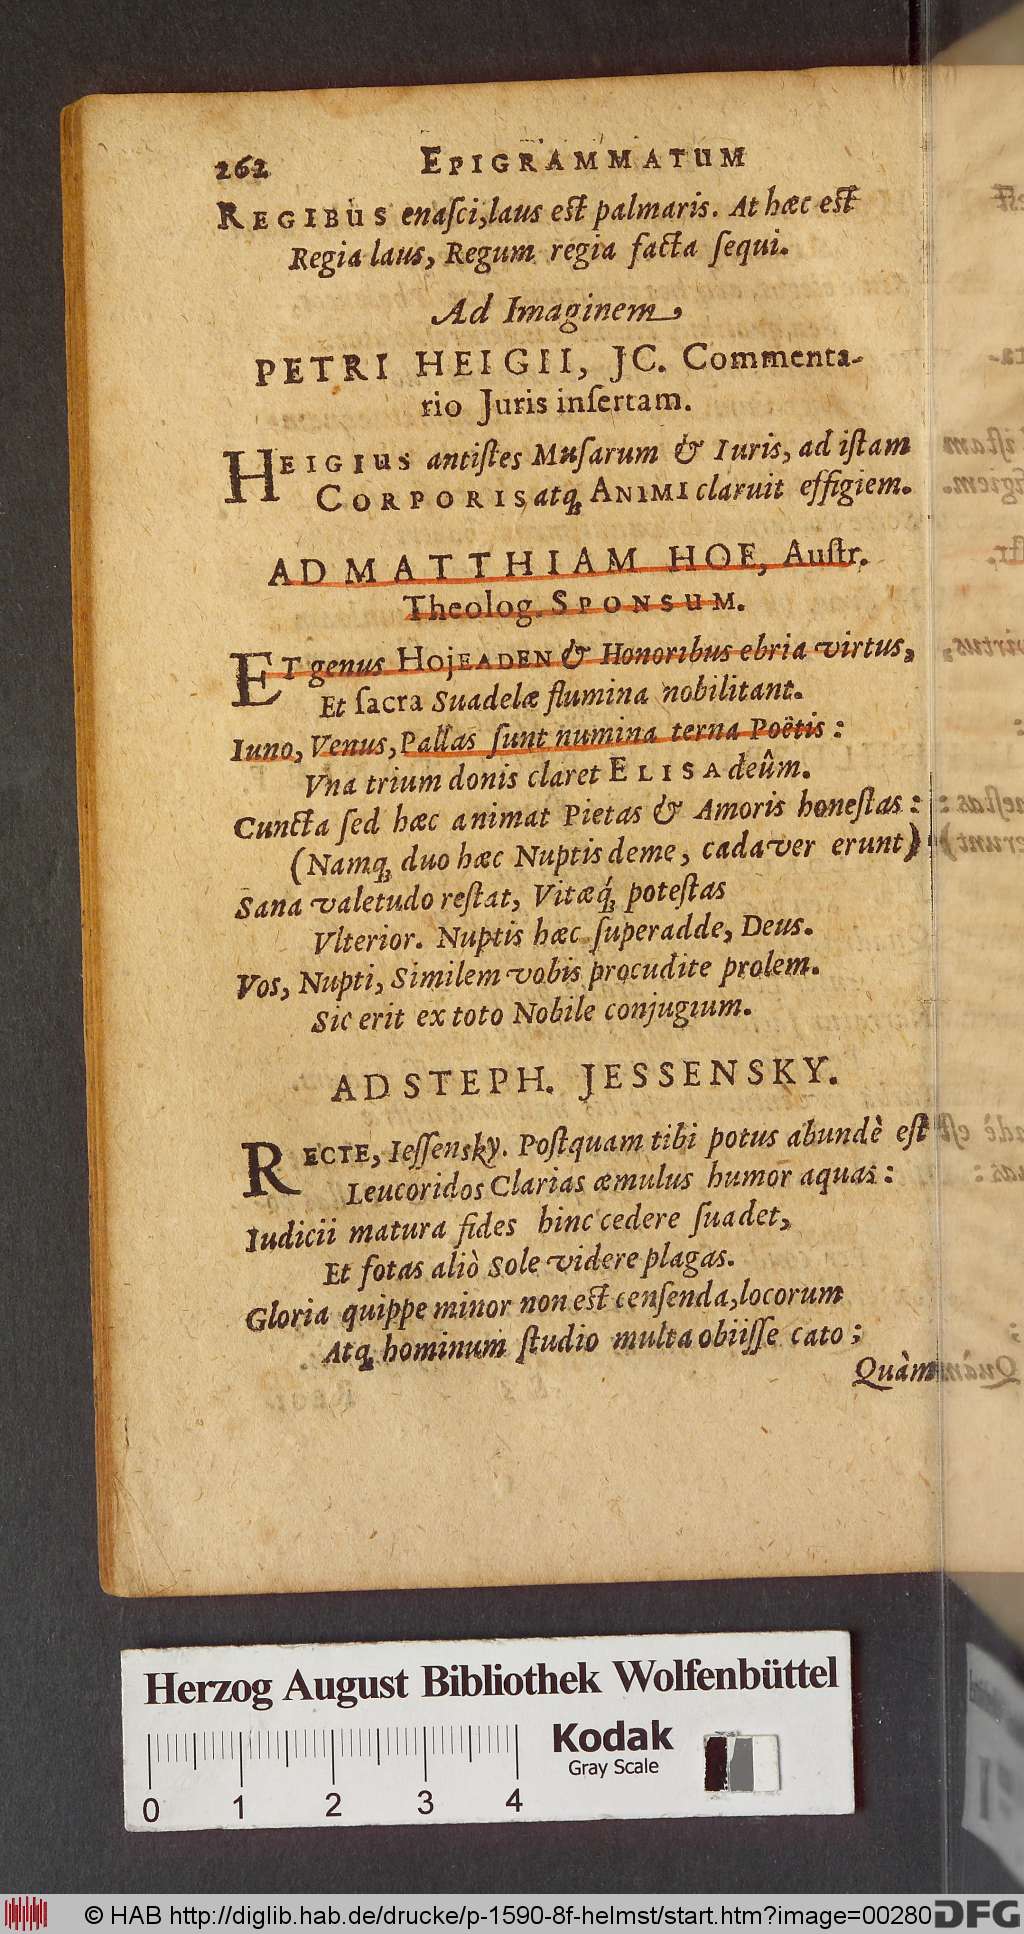 262 EPIGRAMMATUM
REGIBUS enaſci, laus eſt palmaris. At hæc eſt
Regia laus, Regum regia facta ſequi.
Ad Imaginem
PETRI HEIGII, JC. Commenta-
rio Juris inſertam.
HEIGIUS antiſtes Muſarum & Iuris, ad iſtam
CORPORIS atq́ꝫ ANIMI claruit effigiem.
AD MATTHIAM HOE, Auſtr.
Theolog. SPONSUM.
ET genus HOJEADEN & Honoribus ebria virtus,
Et ſacra Suadelæ flumina nobilitant.
Iuno, Venus, Pallas ſunt numina terna Poëtis:
Vna trium donis claret ELISA deûm.
Cuncta ſed hæc animat Pietas & Amoris honeſtas:
(Namqꝫ duo hæc Nuptis deme, cadaver erunt)
Sana valetudo reſtat, Vitæq́ꝫ poteſtas
Vlterior. Nuptis hæc ſuperadde, Deus.
Vos, Nupti, Similem vobis procudite prolem.
Sic erit ex toto Nobile conjugium.
AD STEPH. JESSENSKY.
RECTE, Ieſſensky. Poſtquam tibi potus abundè eſt
Leucoridos Clarias æmulus humor aquas:
Iudicii matura fides hinc cedere ſuadet,
Et fotas aliò Sole videre plagas.
Gloria quippe minor non eſt cenſenda, locorum
Atqꝫ hominum ſtudio multa obiiſſe cato;
Quàm
Herzog August Bibliothek Wolfenbüttel
Kodak
Gray Scale
0 1 2 3 4
© HAB http://diglib.hab.de/drucke/p-1590-8f-helmst/start.htm?image=00280
DFG